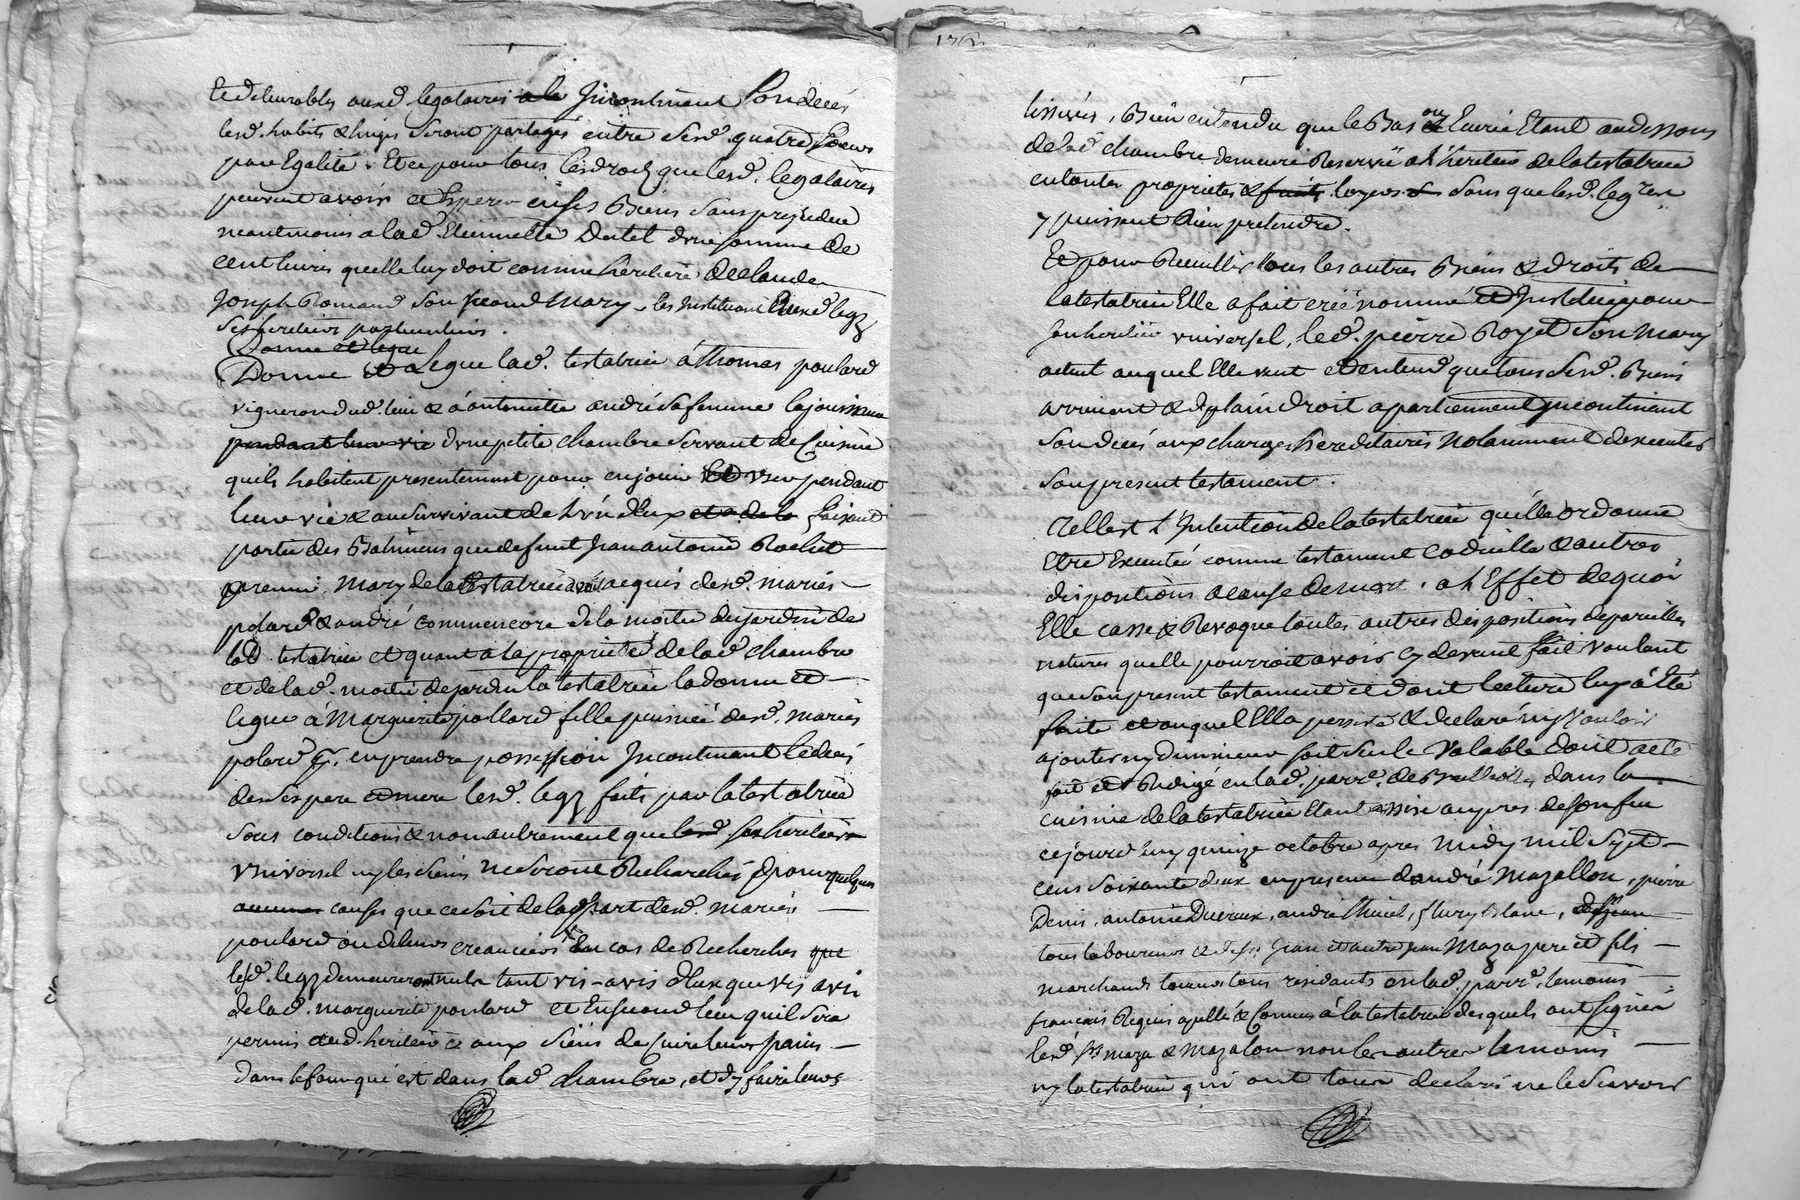 Et deliurables auxd. legataires a la Jncontinent son deces
lesd. habits & linges seront partagés entre sesd. quatre soeurs
par Egalité. Et ce pour tous les droits que lesd. legataires
peuvent avoir et esperer en ses Biens sans prejudice
neantmoins a lad. Etiennette d'une somme de
cent livres quelle luy doit comme heritiere de claude
Joseph Romand son second mary, les Jnstituant auxd. legs
ses heritiers particuliers.
Donne et legue
Donne et Legue lad. testatrice á Thomas poulard
vigneron dud. lieu & á antoinette andré sa femme la jouissance
pendant leur vie d'une petite chambre servant de Cuisine
quils habitent presentement pour en jouir et user pendant
leur vie & au survivant de l'un d'eux et a de la faisant
partie des Batimens que defunt Jean antoine Rochet
premier mary de la testatrice avoit acquis desd. mariés
polard & andré comme encore de la moitie du jardin de
lad. testatrice et quant a la proprieté de lad. chambre
et de lad. moitié de jardin la testatrice la donne et
legue á Marguerite pollard fille puisnée desd. mariés
polard pr. en prendre possession Jncontinant le deces
de ses pere et mere lesd. legs faits par la testatrice
sous conditions & non autrement que led. son heritier
vniversel ny les siens ne seront Recharchés pour quelques
aucunes causes que ce soit de la part desd. mariés
poulard ou de leurs creanciers En cas de Recherches que
lesd. legs demeureront nuls tant vis-avis d'Eux que vis avis
de lad. marguerite poulard et En second lieu quil sera
permis aud. heritier & aux siens de Cuire leurs pains
dans le four qui est dans lad. chambre, et d'y faire leurs
17
lissives, Bien entendu que le Bas ou Ecurie Etant audessous
de lad. chambre demeure Reservée a l'heritier de la testatrice
en toutes proprietés & fruits loyers & sans que lesd. legres
y puissent Rien pretendre.
Et pour Recuillir tous les autres Biens & droits de
la testatrice Elle a fait créé nommé et Jnstitué pour
son heritier vniversel, led. pierre Royet son mary
actuel auquel Elle veut et entend que tous sesd. Biens
arrivent & de plain droit apartiennent Jncontinent
son deces aux charges hereditaires notamment d'executer
son present testament.
Telle est l'Jntention de la testatrice quelle ordonne
Etre Executée comme testament codicille & autres
dispositions a cause de mort. a l'Effet de quoi
Elle casse & Revoque toutes autres dispositions de pareilles
natures quelle pourroit avoir cy devant fait voulant
que son present testament et dont lecture luy á Eté
faite et auquel Elle a persisté & declaré n'y vouloir
ajouter ny diminuer soit seul Valable dont acte
fait et Redigé en lad. parr. de dans la
cuisine de la testatrice Etant assise aupres de son feu
ce jourd'huy quinze octobre apres midy mil sept
cens soixante deux en presence d'andré Mazallon, pierre
Denis, antoine Ducroux, andré fleury Blanc,
tous laboureurs & Jean et autre Jean Maza pere et fils
marchands tous residants en lad. parr. temoins
francois Requis apellé & Connus á la testatrice desquels ont signé
lesd. srs maza & Mazalon non les autres temoins
ny la testatrice qui ont tous declaré ne le scavoir